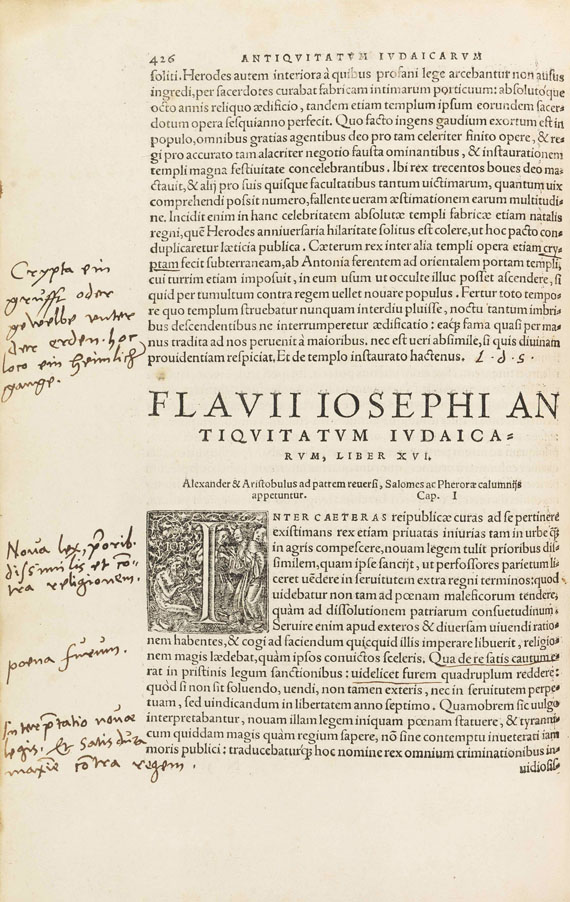 426 ANTIQVITATVM IVDAICARVM
soliti. Herodes autem interiora à quibus profani lege arcebantur non ausus
ingredi, per sacerdotes curabat fabricam intimarum porticuum: absolutoque
octo annis reliquo ædificio, tandem etiam templum ipsum eorundem sacer-
dotum opera sesquianno perfecit. Quo facto ingens gaudium exortum est in
populo, omnibus gratias agentibus deo pro tam celeriter finito opere, & re-
gi pro accurato tam alacriter negotio fausta ominantibus, & instaurationem
templi magna festiuitate concelebrantibus. Ibi rex trecentos boues deo ma-
ctauit, & alij pro suis quisque facultatibus tantum uictimarum, quantum uix
comprehendi possit numero, fallente ueram æstimationem earum multitudi-
ne. Incidit enim in hanc celebritatem absolutæ templi fabricæ etiam natalis
regni, quē Herodes anniuersaria hilaritate solitus est colere, ut hoc pacto con-
duplicaretur læticia publica. Cæterum rex inter alia templi opera etiam cry-
ptam fecit subterraneam, ab Antonia ferentem ad orientalem portam templi,
cui turrim etiam imposuit, in eum usum ut occulte illuc posset ascendere, si
quid per tumultum contra regem uellet nouare populus. Fertur toto tempo-
re quo templum struebatur nunquam interdiu pluisse, noctu tantum imbri-
bus descendentibus ne interrumperetur ædificatio: eaq; fama quasi per ma-
nus tradita ad nos peruenit à maioribus. nec est ueri absimile, si quis diuinam
prouidentiam respiciat. Et de templo instaurato hactenus. L · d · s ·
Crypta ein
grufft oder
gewelbe vnter
der erden. hoc
loco ein heimlich
gange.
FLAVII IOSEPHI AN
TIQVITATVM IVDAICA-
RVM, LIBER XVI.
Alexander & Aristobulus ad patrem reuersi, Salomes ac Pheroræ calumnijs
appetuntur. Cap. I
INTER CAETERAS reipublicæ curas ad se pertinere
existimans rex etiam priuatas iniurias tam in urbe q̃
in agris compescere, nouam legem tulit prioribus dis-
similem, quam ipse sancijt, ut perfossores parietum li-
ceret uēdere in seruitutem extra regni terminos: quod
uidebatur non tam ad pœnam maleficorum tendere,
quàm ad dissolutionem patriarum consuetudinum.
Seruire enim apud exteros & diuersam uiuendi ratio-
nem habentes, & cogi ad faciendum quicquid illis imperare libuerit, religio-
nem magis lædebat, quàm ipsos conuictos sceleris. Qua de re satis cautum e-
rat in pristinis legum sanctionibus: uidelicet furem quadruplum reddere:
quòd si non sit soluendo, uendi, non tamen exteris, nec in seruitutem perpe-
tuam, sed uindicandum in libertatem anno septimo. Quamobrem sic uulgo
interpretabantur, nouam illam legem iniquam pœnam statuere, & tyranni-
cum quiddam magis quàm regium sapere, nō sine contemptu inueterati iam
moris publici: traducebaturq; hoc nomine rex omnium criminationibus in-
uidiosis-
Noua lex, priorib.
dissimilis et cō-
tra religionem.
poena furum.
Interp̄tatio nouae
legis. Et satis dura
maxīe cōtra regem.